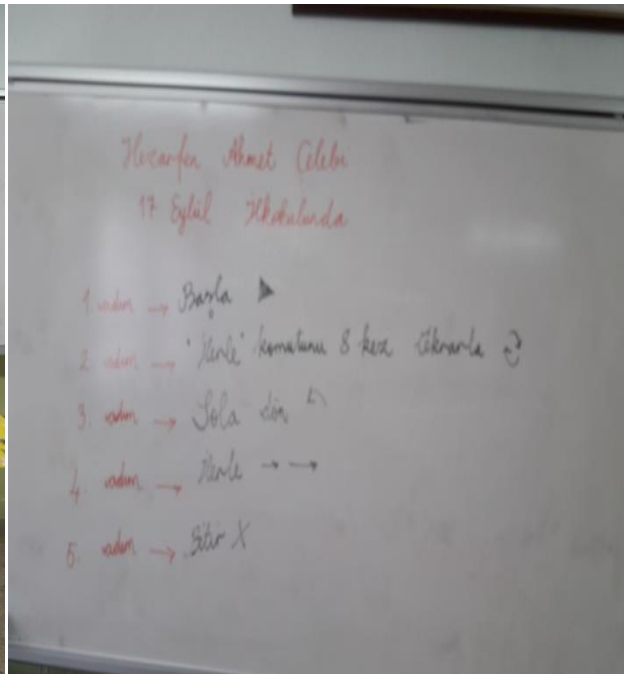 Hezarfen Ahmet Çelebi
17 Eylül İlkokulunda
1. adım → Başla ▶
2. adım → "İlerle" komutunu 8 kez tekrarla
3. adım → Sola dön
4. adım → İlerle → →
5. adım → Bitir X